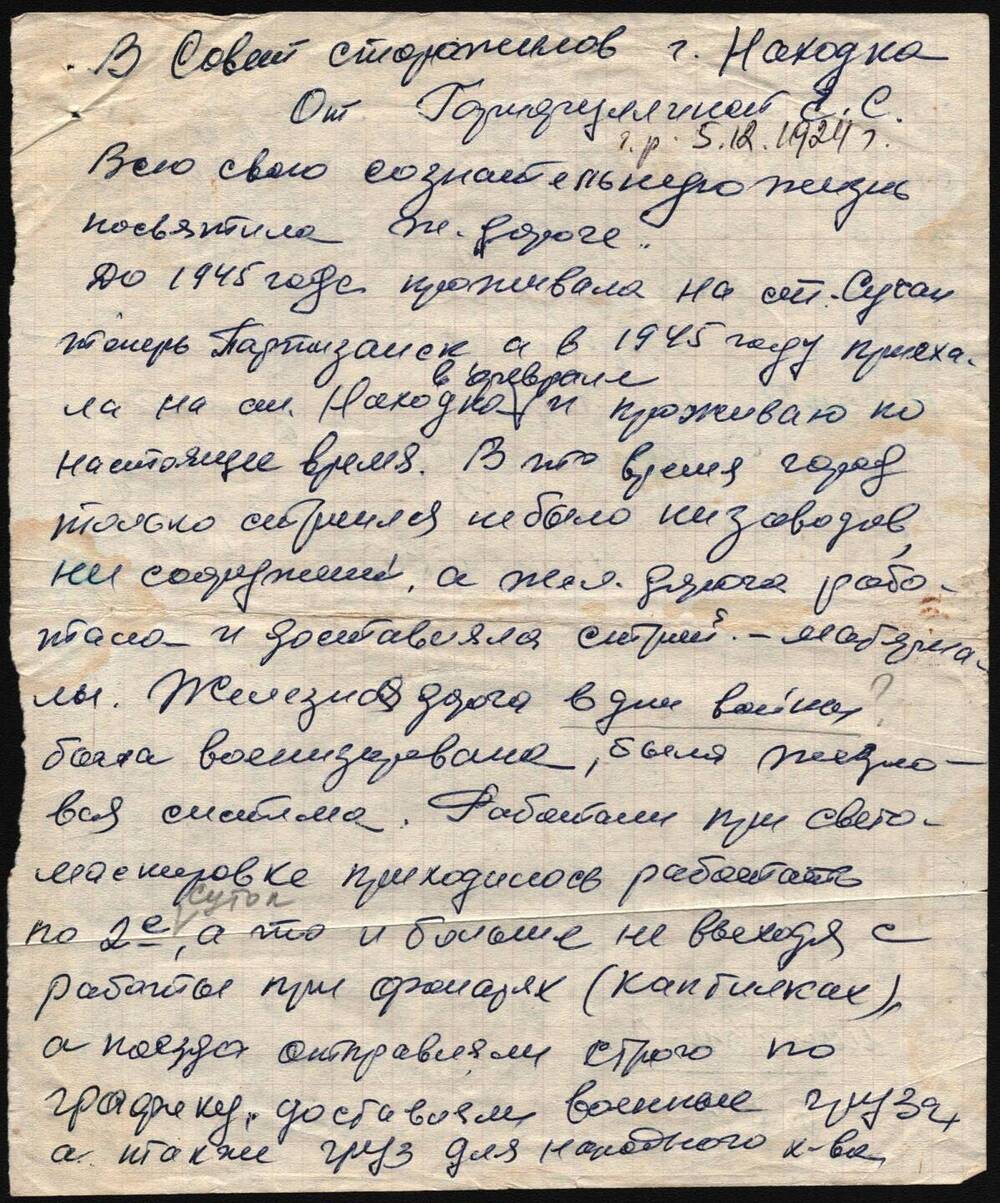 В Совет старожилов г. Находка
От Е. С.
г. р. 5.12.1924 г.
Всю свою сознательную жизнь
посвятила ж. дороге.
До 1945 года проживала на ст. Сучан
теперь Партизанск а в 1945 году приеха-
в феврале
ла на ст. Находка и проживаю по
настоящее время. В это время город
только строился не было ни заводов,
ни сооружений, а жел. дорога рабо-
тала и доставляла строй. - матерма-
лы. Железная дорога в дни войны ?
была военизирована, была жезло-
вая система. Работали при свето-
маскировке приходилось работать
суток
по 2е, а то и больше не выходя с
работы при фонарях (каптилках),
а поезда отправляли строго по
графику, доставляли военные груза,
а также груз для народного х-ва